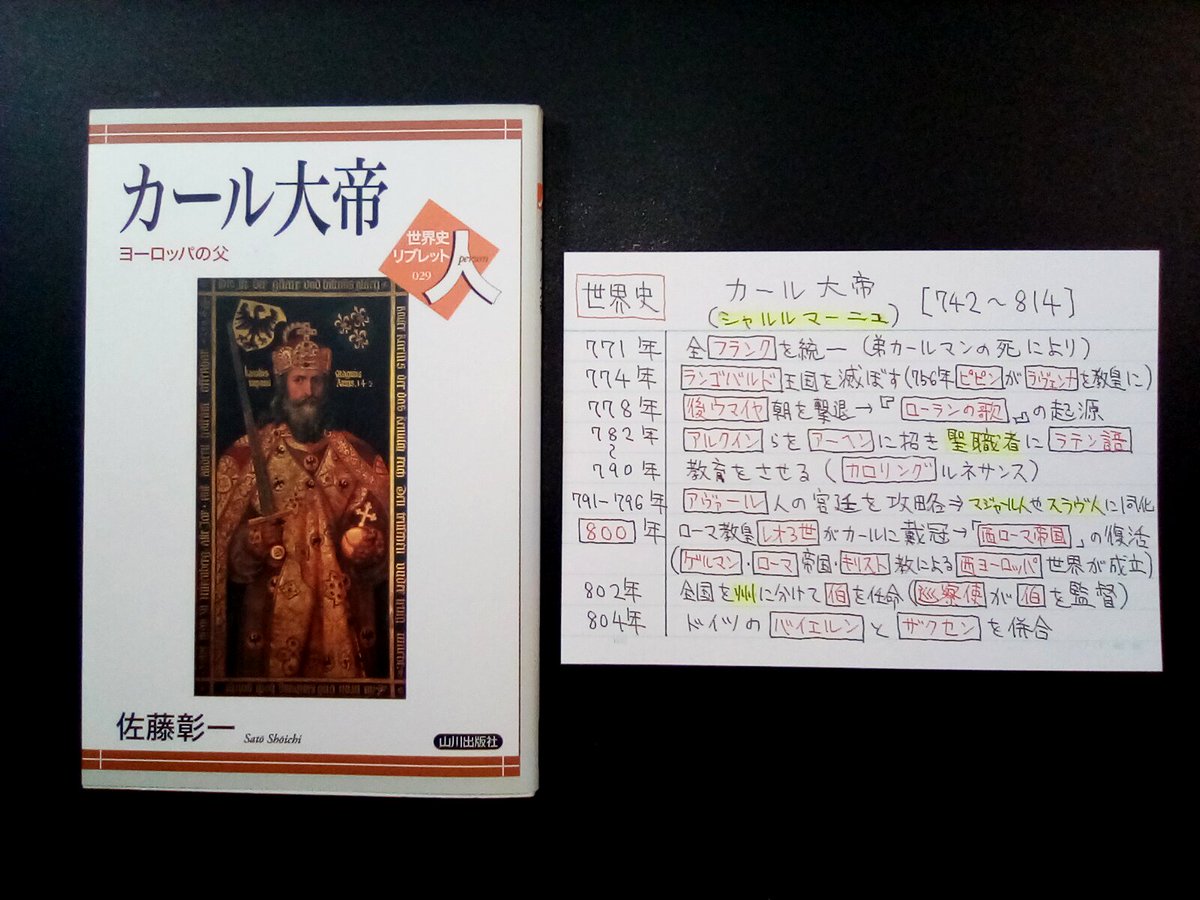 カール大帝
ヨーロッパの父
世界史
リブレット
人
person
029
佐藤彰一
Satō Shōichi
山川出版社
世界史
カール大帝
(シャルルマーニュ)
[742～814]
771年 全フランクを統一(弟カールマンの死により)
774年 ランゴバルド王国を滅ぼす(756年ピピンがラヴェンナを教皇に)
778年 後ウマイヤ朝を撃退→『ローランの歌』の起源
782年 アルクインらをアーヘンに招き聖職者にラテン語
～
790年 教育をさせる(カロリングルネサンス)
791-796年 アヴァール人の宮廷を攻略⇒マジャール人やスラヴ人に同化
800年 ローマ教皇レオ3世がカールに戴冠→「西ローマ帝国」の復活
(ゲルマン・ローマ帝国・キリスト教による西ヨーロッパ世界が成立)
802年 全国を州に分けて伯を任命(巡察使が伯を監督)
804年 ドイツのバイエルンとザクセンを併合